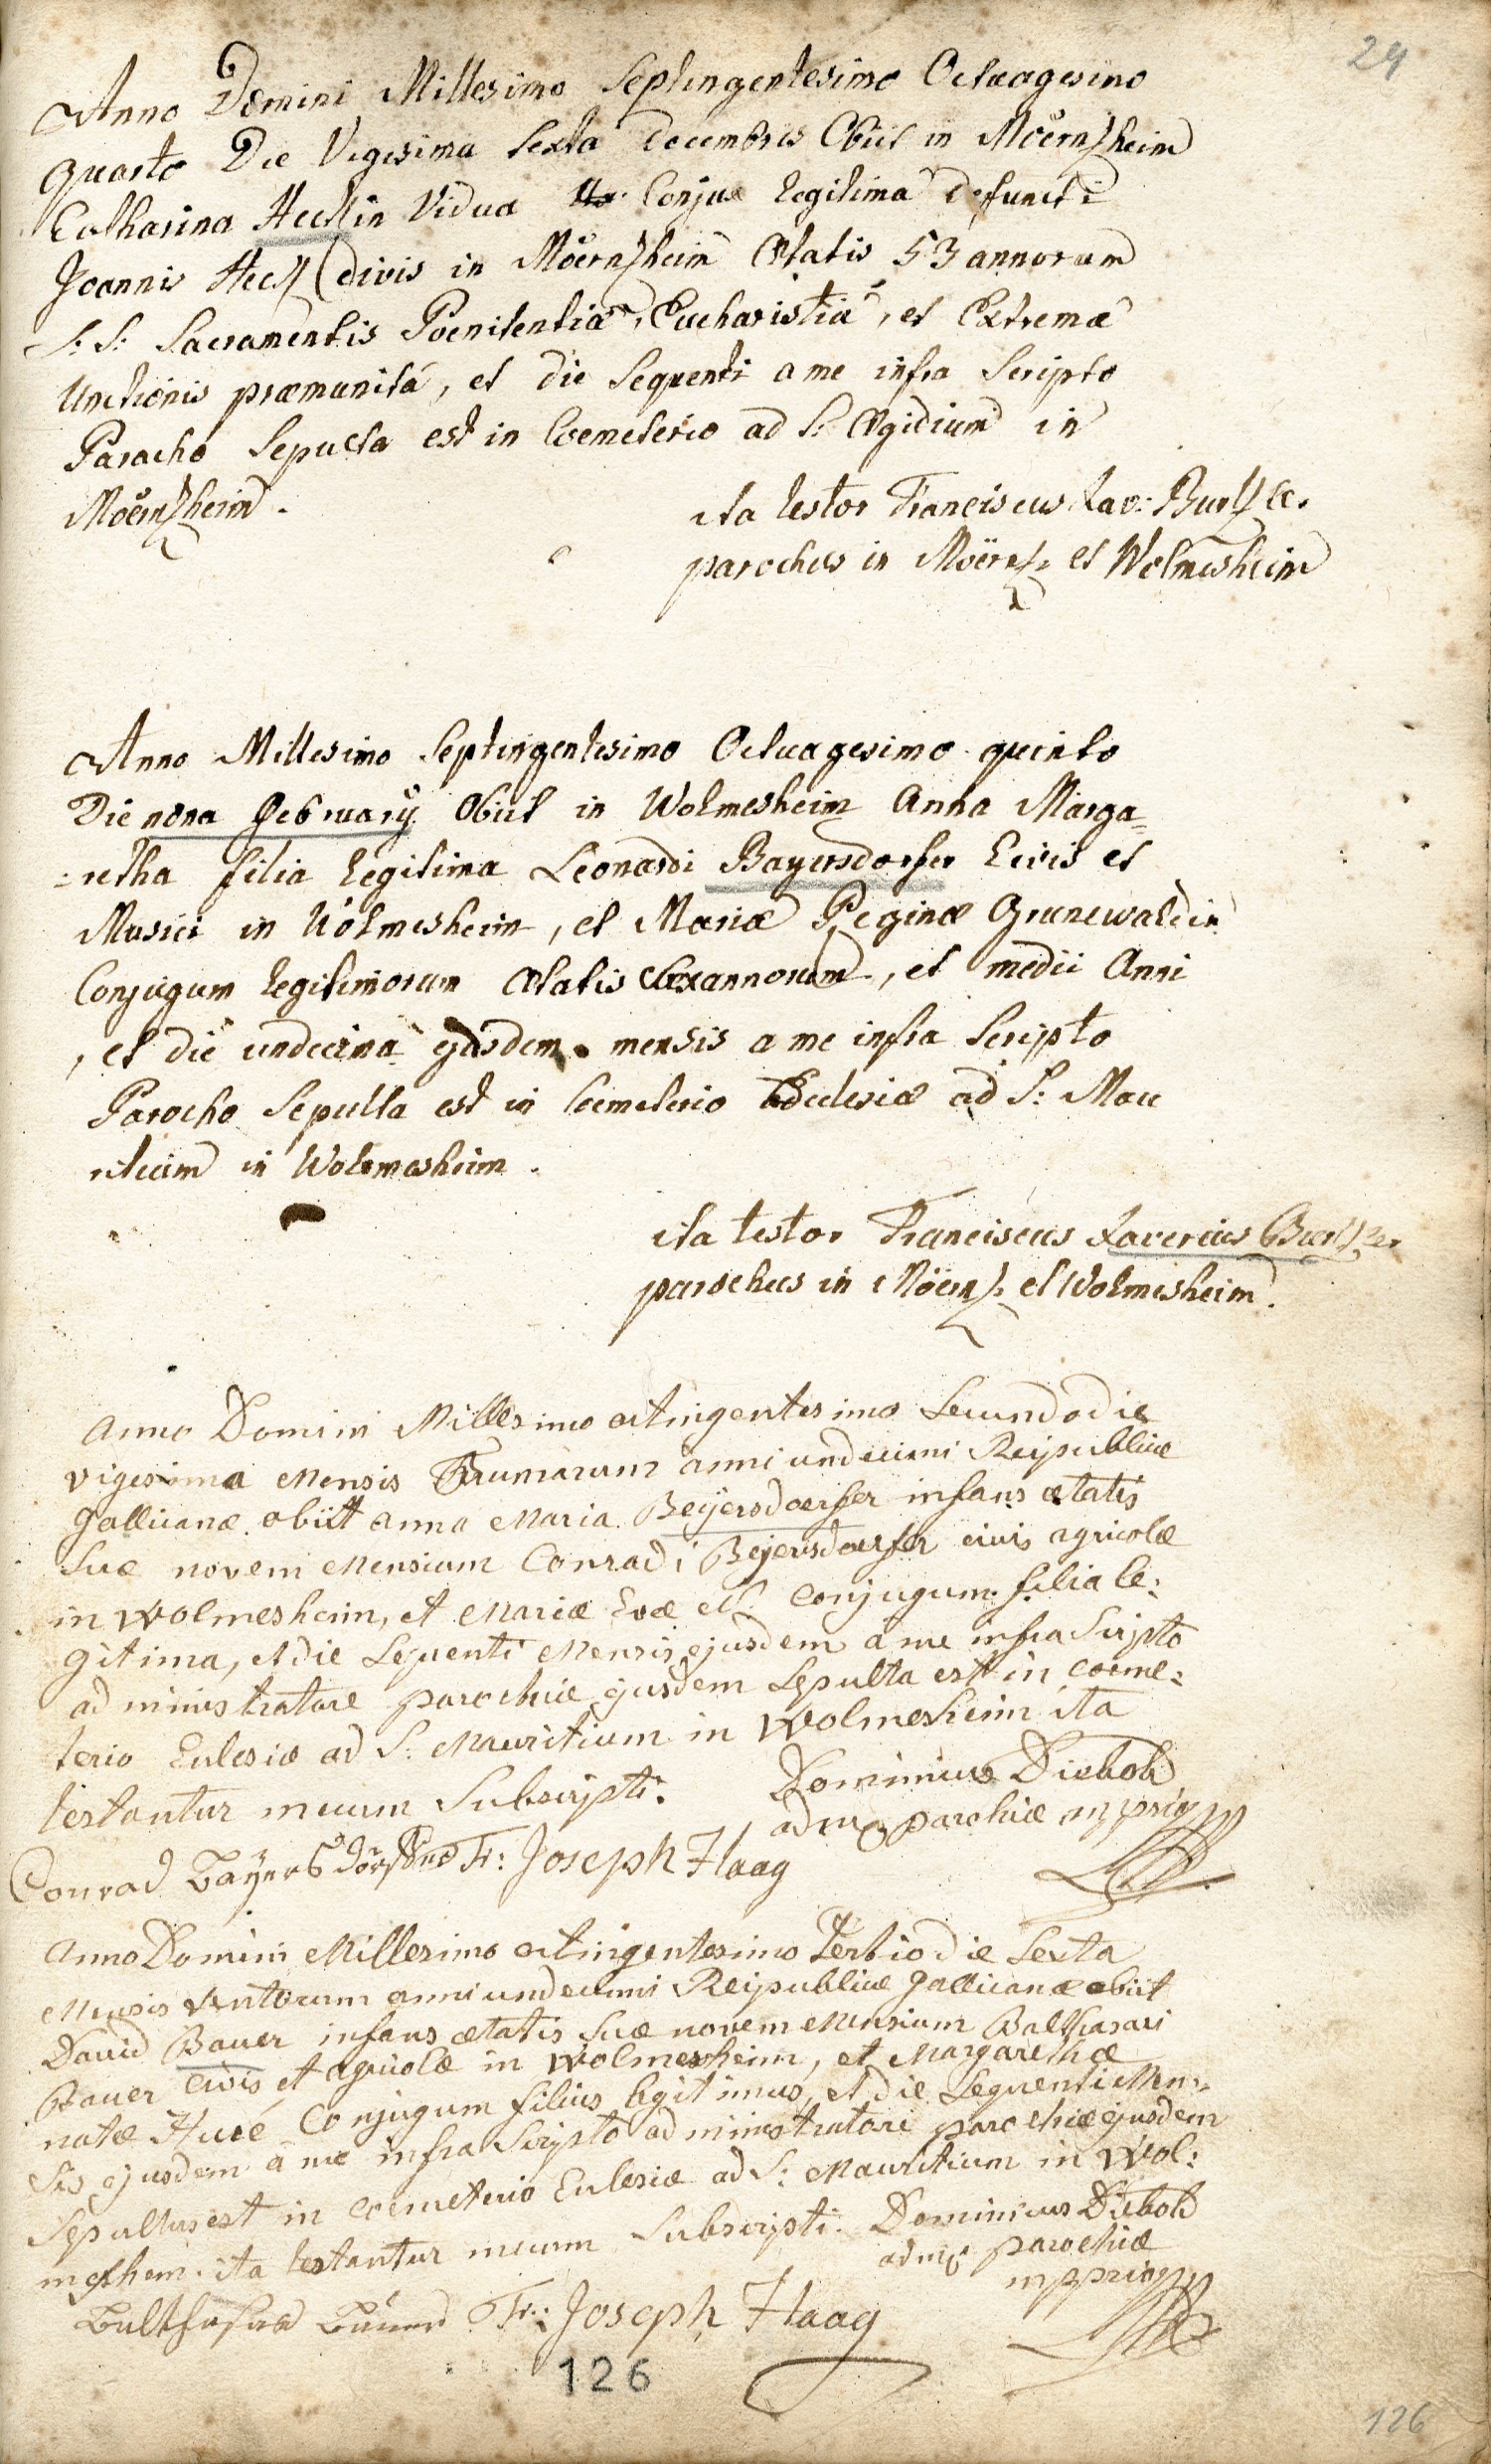 24
Anno Domini Millesimo Septingentesimo Octuagesimo
quarto Die Vigesima Sexta decembris Obiit in Moërnzheim
Catharina Heckin Vidua Conjux legitima defuncti
Joannis Heck Civis in Moërnzheim Ætatis 53 annorum
S: S: Sacramentis Poenitentiæ, Eucharistiæ, et Extremæ
Unctionis præmunita, et die Sequenti a me infra Scripto
Parocho Sepulta est in Coemeterio ad S: Ægidium in
Moërnzheim.
ita testor Franciscus Xav:
parochus in Moërnz: et Wolmesheim
Anno Millesimo Septingentesimo Octuagesimo quinto
Die nona February Obiit in Wolmesheim Anna Marga=
=retha filia legitima Leonardi Bayersdorfer Civis et
Musici in Wolmesheim, et Mariæ Reginæ Grunewaldin
Conjugum legitimorum Ætatis annorum, et medii Anni
, et die undecima ejusdem mensis a me infra Scripto
Parocho Sepulta est in Coemeterio Ecclesiæ ad S: Mau
ritium in Wolmesheim.
ita testor Franciscus Xaverius
parochus in Möernz: et Wolmesheim.
Anno Domini Millesimo octingentesimo Secundo die
vigesima Mensis Brumarum anni undecimi Reipublicæ
Gallicanæ obiit Anna Maria Beyersdoerfer infans ætatis
Suæ novem Mensium Conradi Beyersdoerfer civis agricolæ
in Wolmesheim, et Mariæ Evæ conjugum filia le:
gitima, et die Sequenti Mensis ejusdem a me infra Scripto
administratore parochiæ ejusdem Sepulta est in coeme:
terio Ecclesiæ ad S: Mauritium in Wolmesheim ita
testantur mecum Subscripti. Dominicus Diebold
adm. parochiæ mppria
Conrad Bayersdörfer Fr: Joseph Haag
Anno Domini Millesimo octingentesimo tertio die Sexta
Mensis Ventorum anni undecimi Reipublicæ Gallicanæ obiit
David Bauer infans ætatis Suæ novem Mensium Balthasari
Bauer civis et agricolæ in Wolmesheim, et Margarethæ
natæ Conjugum filius legitimus, et die Sequenti Men:
Sis ejusdem a me infra Scripto administratore parochiæ ejusdem
Sepultus est in coemeterio Ecclesiæ ad S: Mauritium in Wol:
meshem. ita testantur mecum Subscripti. Dominicus Diebold
adm. parochiæ
mppria
Balthasar Bauer Fr: Joseph Haag
126
126